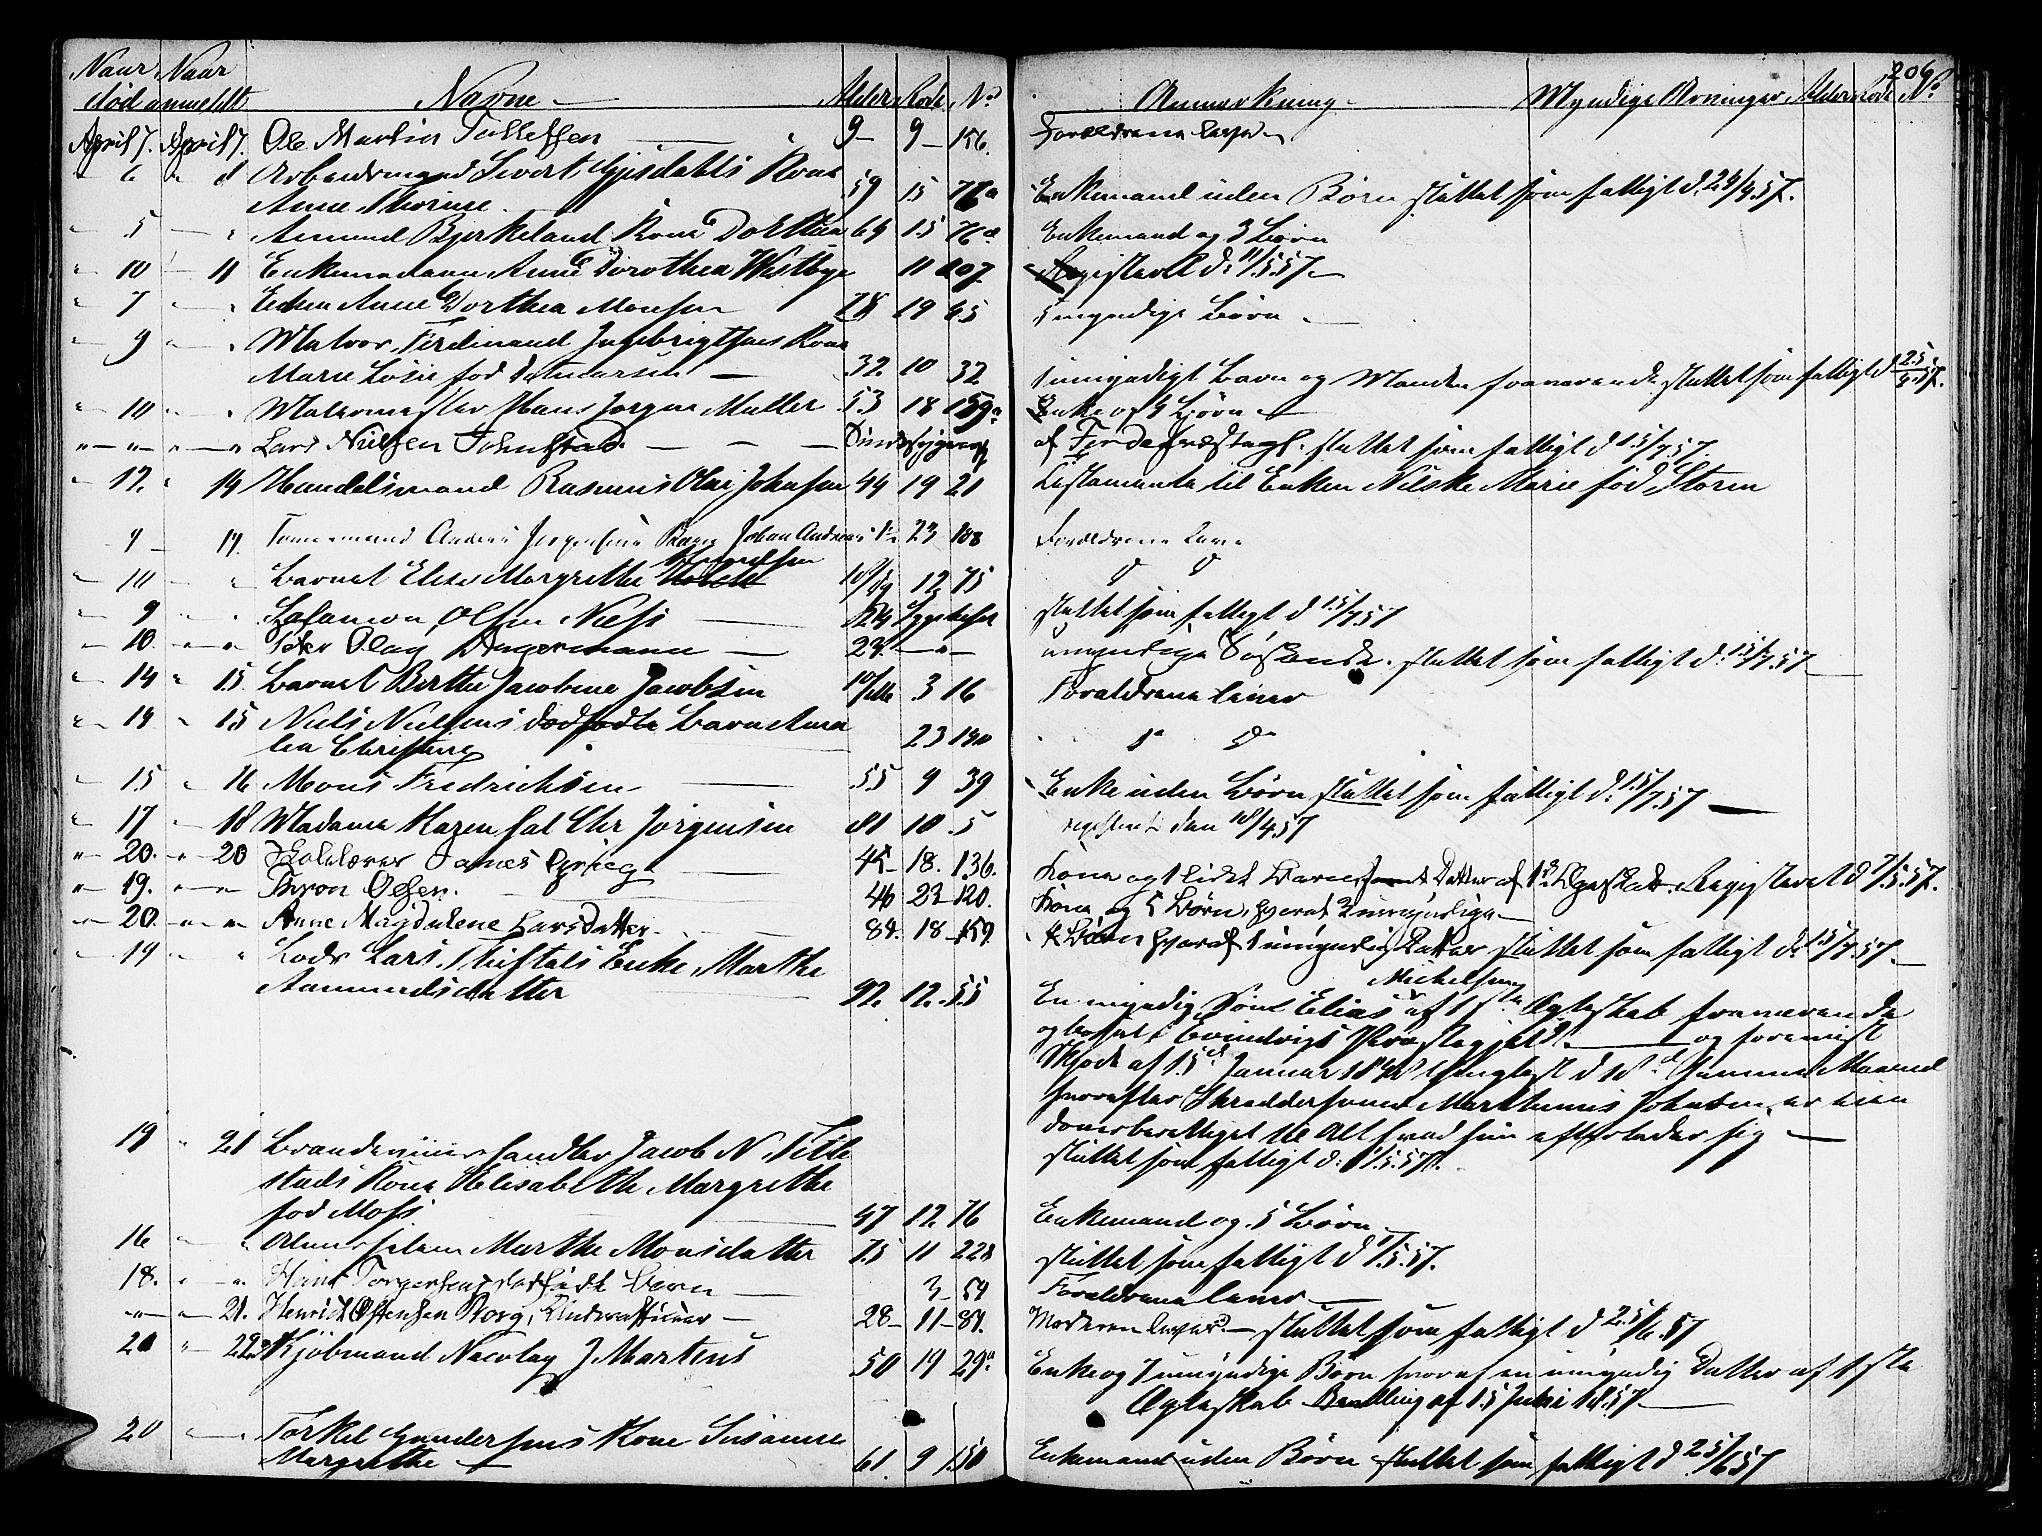 206
Naar Naar
død anmeldt Navne Alder Rode No Anmærkning Myndige Arvinger Alder Rode No
April 7. April 7. Ole Martin Tollefsen 9 9 156. Forældrene lever
6 d Arbeidsmand Sivert Gjisdahls Kone
Anne Thorine 59 15 76a Enkemand uden Børn sluttet som fattigt d. 24/4 57.
5 Amund Bjerkeland Kone Dorthea 64 15 76a Enkemand og 3 Børn
10 11 Enkemadame Anne Dorothea Westbye 11 107 Registeret d. 11/5 57
7 Enken Anne Dorthea Monsen 78 19 45 5 myndige Børn
9 Matros Ferdinand Ingebrigtsens Kone
Marie Losie fød Detmarsen 32 10 32 1 umyndigt Barn og Manden fraværende sluttet som fattigt d 25/5 57.
10 Malermester Hans Jørgen Müller 53 18 159a Enke og 4 Børn
Lars Nielsen Tohnstad Sindssygeasyl af Førde Præstegj. sluttet som fattigt d 15/7 57.
12. 14 Handelsmand Rasmus Olai Johnsen 44 19 21 Testamente til Enken Nilske Marie fød Storm
9 14. Tømmermand Anders Jørgensens Barn Johan Andreas 23 108 Forældrene leve
Hansdatter
10 Barnet Elise Margrethe 12 75 d d
9 Salamon Olsen Næss Sygehuset sluttet som fattigt d 15/7 57
10. Peder Olay Angermann 24. umyndige Søskende. sluttet som fattigt d. 15/7 57
14 15. Barnet Berthe Jacobine Jacobsen 3 16 Forældrene lever
14 15 Niels Nielsens dødfødte Barn Ama
lia Christine 23 190 d d
15 16 Mons Fredriksen 55 9 39 Enke uden Børn sluttet som fattigt d. 15/7 57
17 18 Madame Karen sal Chr Jørgensen 81 10 5 registeret den 18/4 57
20. 20 Skolelærer James Grieg 45 18. 136. Kone og 1 lidet Barn, samt Datter af 1ste Ægteskab. Registeret d 7/5 57.
19. Thron Olsen. 40 23 120. Kone og 5 Børn, hvoraf 3 umyndige
20. Anne Magdalene Larsdatter 84. 18 159. 4 Børn hvoraf 1 umyndig Datter sluttet som fattigt d. 15/7 57.
19 Lods Lars Thiftals Enke Marthe
Aamundsdatter 92. 12. 55 En myndig Søn Elias Michelsen af 1ste Ægteskab fraværende
og bosat i Evindvigs Præstegjeld. og foreviist
Skjøde af 15d Januar 1848 tinglæst d 18d samme Maaned
hvorefter Skreddersvend Marthinus Johnsen, er een
donerberettiget til Alt hvad hun efterlader sig
sluttet som fattigt d. 1/5 57.
19 21 Brændeviinshandler Jacob N. Title
stads Kone Elisabeth Margrethe
fød Moss 47 12. 76 Enkemand og 5 Børn
16 Almisselem Marthe Monsdatter 75 11 228 sluttet som fattigt d 1/5 57.
18. Hans Torgersens dødfødt Barn 3 54 Forældrene lever
21. Henrich Offensen Borg, Underofficier 28 11 84. Moderen lever. sluttet som fattigt d 25/6 57
20 22 Kjøbmand Nicolay J. Martens 50 19 29a Enke og 7 umyndige Børn hvoraf en umyndig Datter af 1ste
Ægteskab Bevilling af 15 Juni 1857
20 Torkel Gundersens Kone Susanne
Margrethe 61. 9 150 Enkemand uden Børn sluttet som fattigt d 25/6 57